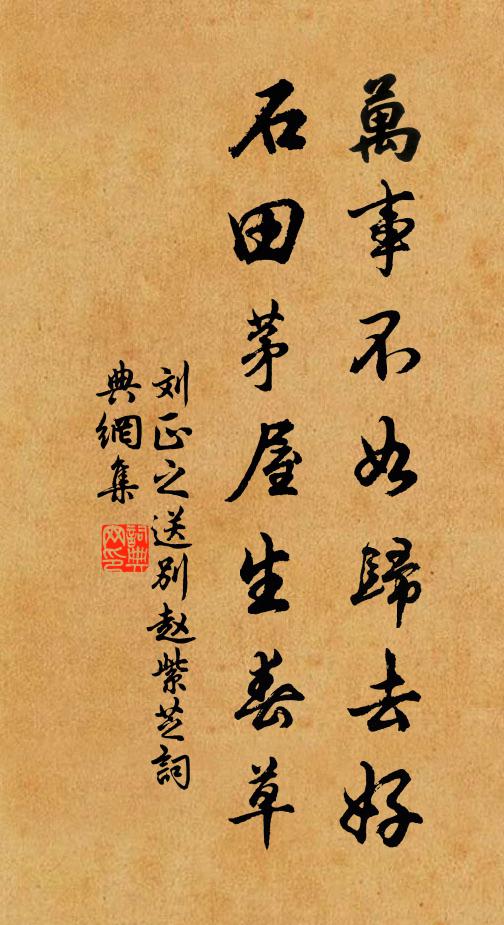 萬事不如歸去好
石田茅屋生春草
刘正之送別赵紫芝詞
典網集
詞典
网印